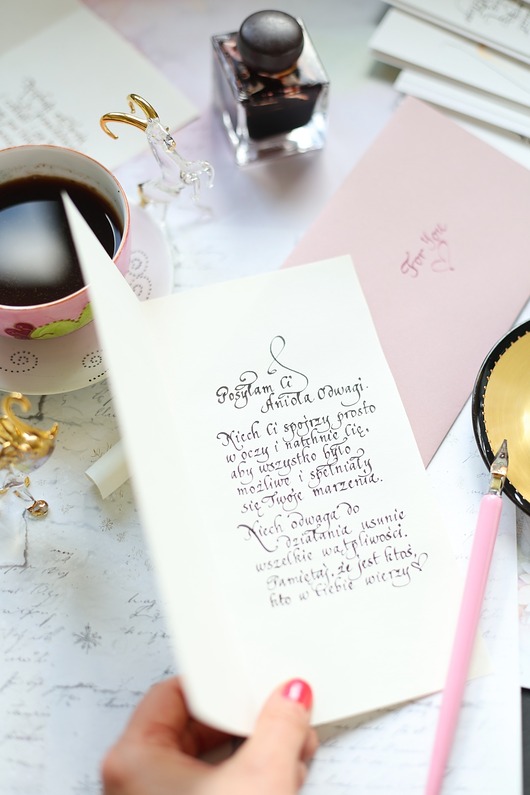 For You
Posyłam Ci
Anioła Odwagi.
Niech Ci spojrzy prosto
w oczy i natchnie Cię,
aby wszystko było
możliwe i spełniały
się Twoje marzenia.
Niech odwaga do
działania usunie
wszelkie wątpliwości.
Pamiętaj, że jest ktoś,
kto w Ciebie wierzy